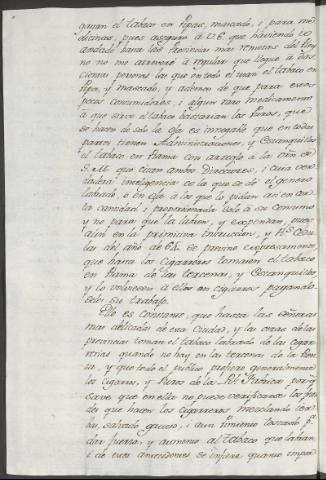 gauan el tabaco en Pipas, mascado, i para me
dicinas, pues aseguro à V.E. que haviendo
andado hasta las Provincias mas remotas del Rey
no no me atreveré a regular que llegue a dos
cientas personas las que en todo el usan el tabaco en
Pipa, y mascado, y ademas de que para estos
pocos consumidores, i algun raro medicamento
a que sirve el tabaco bastarian los Puros, que
se hacen de solo la oja es innegable que en todas
partes tienen Administraciones, y Estanquillos
el tabaco en Rama con arreglo a la
S.M. que citan ambos Directores, i cuia ver
dadera inteligencia es la que se dé el genero
labrado, ò en oja a los que lo pidan asi en cor
ta cantidad i proporcionada solo à su consumo
y no para que la labren, y expendan, pues
aun en la primitiva Instruccion, y Rl. Cedu
la del año de 64. se previno expresamente,
que hasta los cigarreros tomasen el tabaco
en Rama de las tercenas, y Estanquillos
y lo volviesen à ellos en cigarros pagando
seles su trabajo.
Ello es constante, que hasta las señoras
mas delicadas de esta Ciudad, y las otras de las
provincias toman el tabaco labrado de las cigar
rerias quando no hay en las tercenas de la Ren
ta, y que todo el publico prefiere generalmente
los cigarros, y Puros de la Rl. Fabrica porq.
save que en ella no puede verificarse los frau
des que hacen los cigarreros mezclando
salvado grueso, i aun Pimiento tostado p.a
dar fuerza, y aumento al tabaco que labran
i de estos antecedentes se infiere, quanto impor